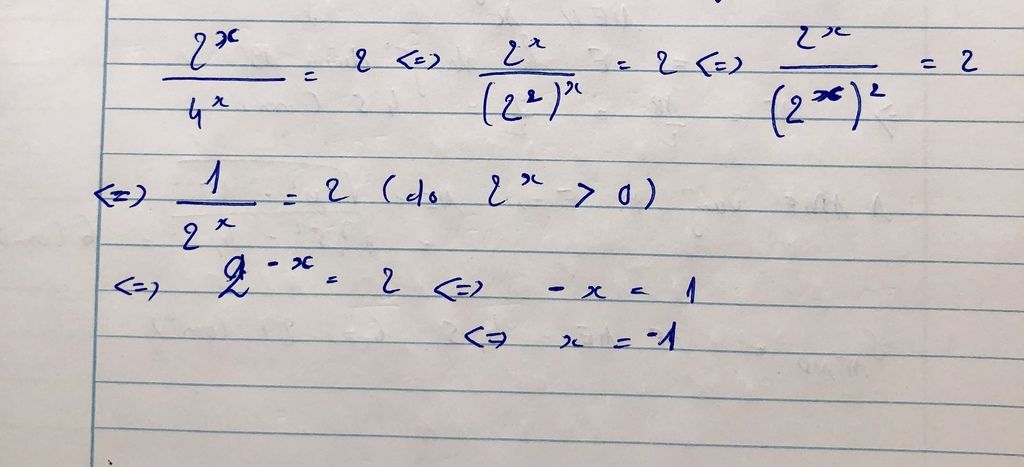 2^x / 4^x = 2 <=> 2^x / (2^2)^x = 2 <=> 2^x / (2^x)^2 = 2
<=> 1 / 2^x = 2 (do 2^x > 0)
<=> 2^-x = 2 <=> -x = 1
<=> x = -1